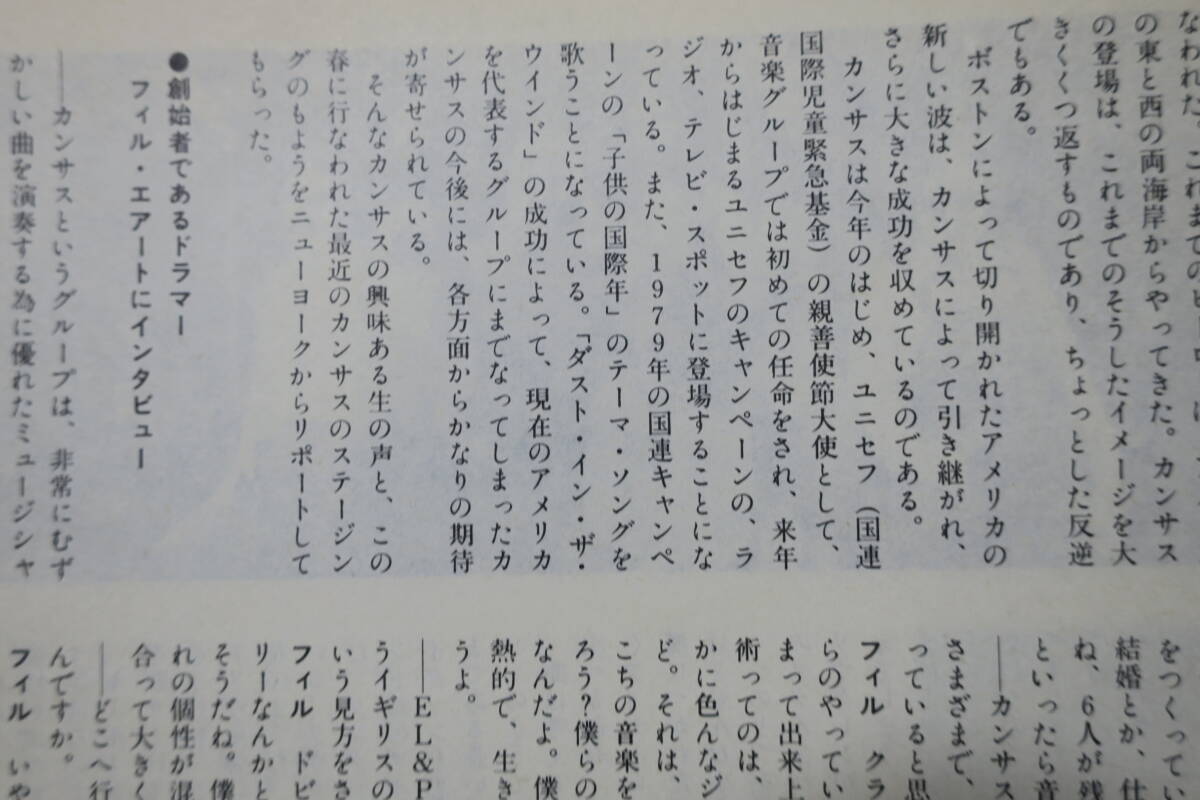 なわれた。これまでの
の東と西の両海岸からやってきた。カンサス
の登場は、これまでのそうしたイメージを大
きくくつ返すものであり、ちょっとした反逆
でもある。
ボストンによって切り開かれたアメリカの
新しい波は、カンサスによって引き継がれ、
さらに大きな成功を収めているのである。
カンサスは今年のはじめ、ユニセフ（国連
国際児童緊急基金）の親善使節大使として、
音楽グループでは初めての任命をされ、来年
からはじまるユニセフのキャンペーンの、ラ
ジオ、テレビ・スポットに登場することにな
っている。また、1979年の国連キャンペ
ーンの「子供の国際年」のテーマ・ソングを
歌うことになっている。「ダスト・イン・ザ・
ウインド」の成功によって、現在のアメリカ
を代表するグループにまでなってしまったカ
ンサスの今後には、各方面からかなりの期待
が寄せられている。
そんなカンサスの興味ある生の声と、この
春に行なわれた最近のカンサスのステージン
グのもようをニューヨークからリポートして
もらった。
●創始者であるドラマー
フィル・エアートにインタビュー
――カンサスというグループは、非常にむず
かしい曲を演奏する為に優れたミュージシャ
をつくってい
結婚とか、仕
ね、6人が残
といったら音
――カンサス
さまざまで、
っていると思
フィル　クラ
らのやってい
まって出来上
術ってのは、
かに色んなジ
ど。それは、
こちの音楽を
ろう？僕らの
なんだよ。僕
熱的で、生き
うよ。
――EL&P
うイギリスの
いう見方をさ
フィル　ドビ
リーなんかと
そうだね。僕
れの個性が混
合って大きく
――どこへ行
んですか。
フィル　いや